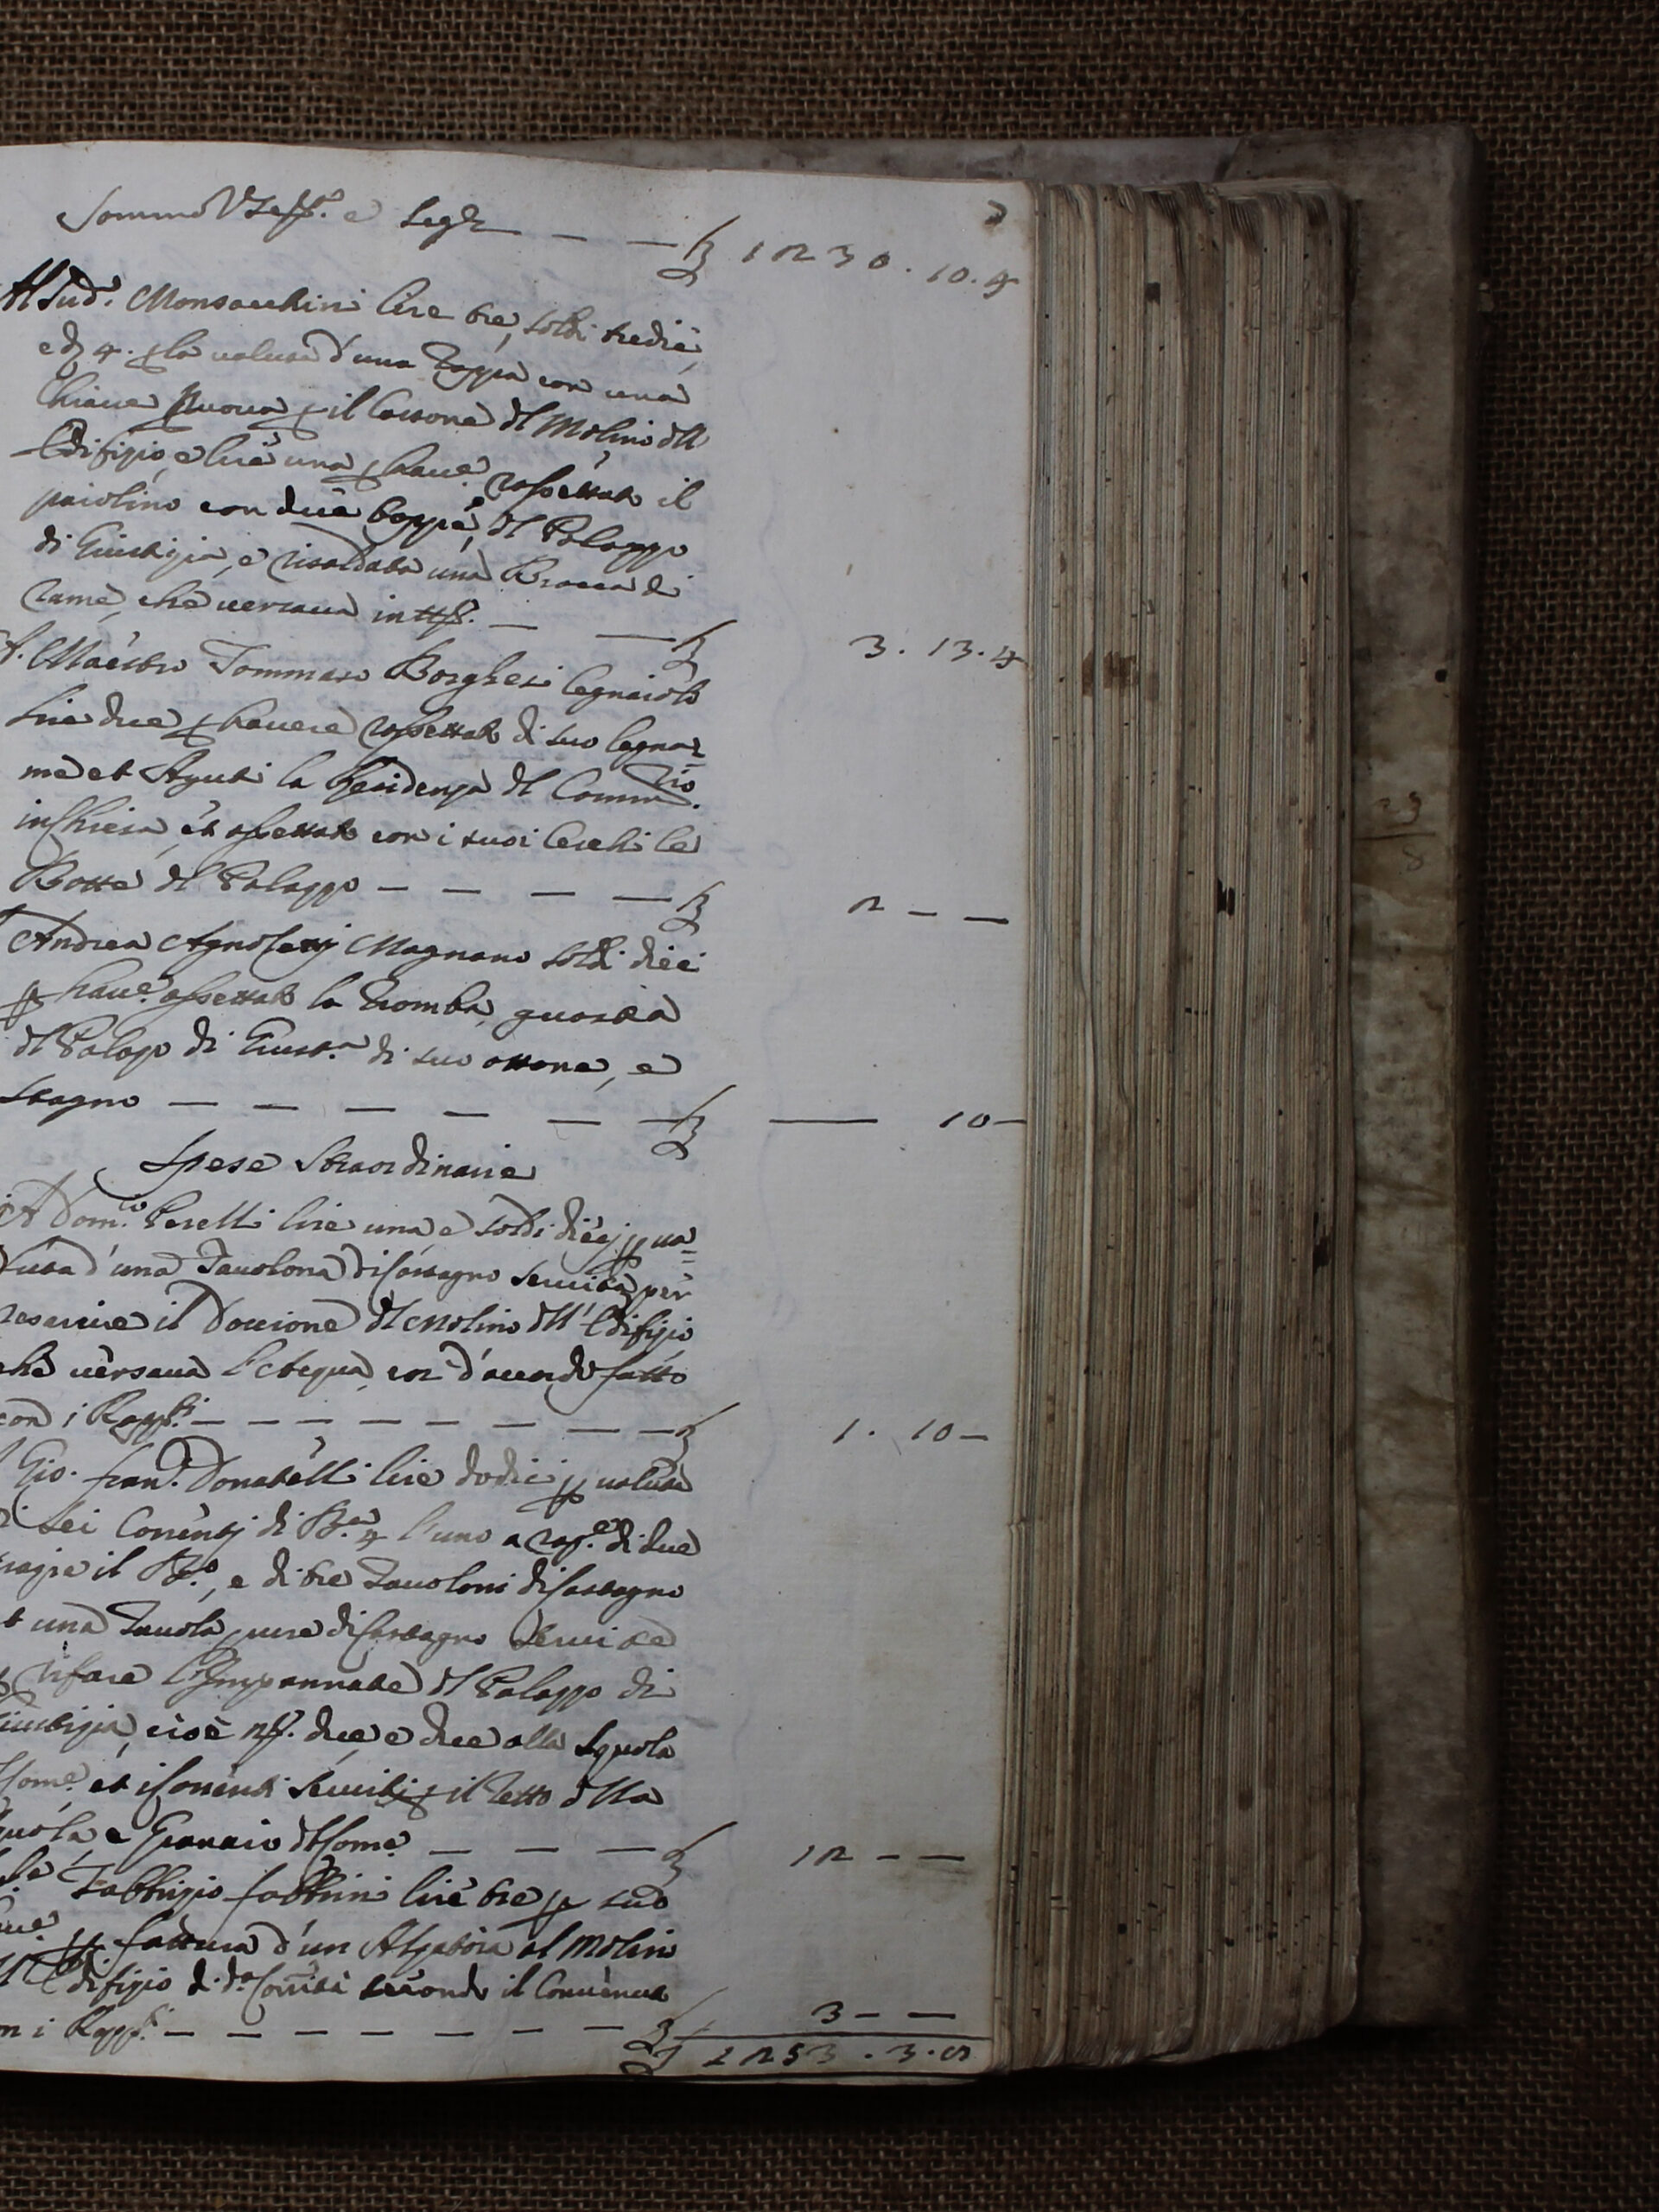 Somma V Seg.e e Segue — — — £ 1230 . 10 . 4
Al Sud.o Monsacchini lire tre, soldi tredici,
e d 4. p la valuta d'una Toppa con una
Chiave nuova p il Cassone dl Molino dll
Edifizio, e lire una p have.e rassettato il
paiolino con due toppe, dl Palazzo
di Giustizia, e risaldata una Brocca di
rame, che versava in tt — — £ 3 . 13 . 4
A. Maestro Tommaso Borghesi legnaiolo
lire due p havere rassettato di suo legna=
me et Aguti la Residenza dl Comm.rio
in Chiesa, et assettato con i suoi Cerchi le
Botte dl Palazzo — — — — £ 2 — —
Andrea Agnoletti Magnano soldi dieci
p have.e assettato la tromba, guasta
dl Palazo di Giust.a di suo ottone, e
stagno — — — — — — £ — 10 —
Spese Straordinarie
A Dom.co Peselli lire una e soldi dieci p va=
luta d'una Tavolona di Castagno servita per
resarcire il Doccione dl Molino dll' Edifizio
che versava l'Acqua, co d'accordo fatto
con i Rapp.ti — — — — — — — £ 1 . 10 —
Gio. Fran.co Donatelli lire dodici p valuta
di sei Correnti di B.a 4 l'uno a rag.e di due
crazie il B.o, e di tre Tavoloni di Castagno
et una Tavola pure di Castagno servite
p rifare l'Impannate dl Palazzo di
Giustizia, cioè n. due, e due alla Squola
Come, et i Correnti serviti p il Tetto dlla
Squola e Granaio dl Come — — — £ 12 — —
Fabbrizio Fabbrini lire tre p suo
p fattura d'un Alzatoia al Molino
Edifizio d d.a Comità secondo il Convenuto
con i Rapp.ti — — — — — — — £ 3 — —
£ 1253 . 3 . 8